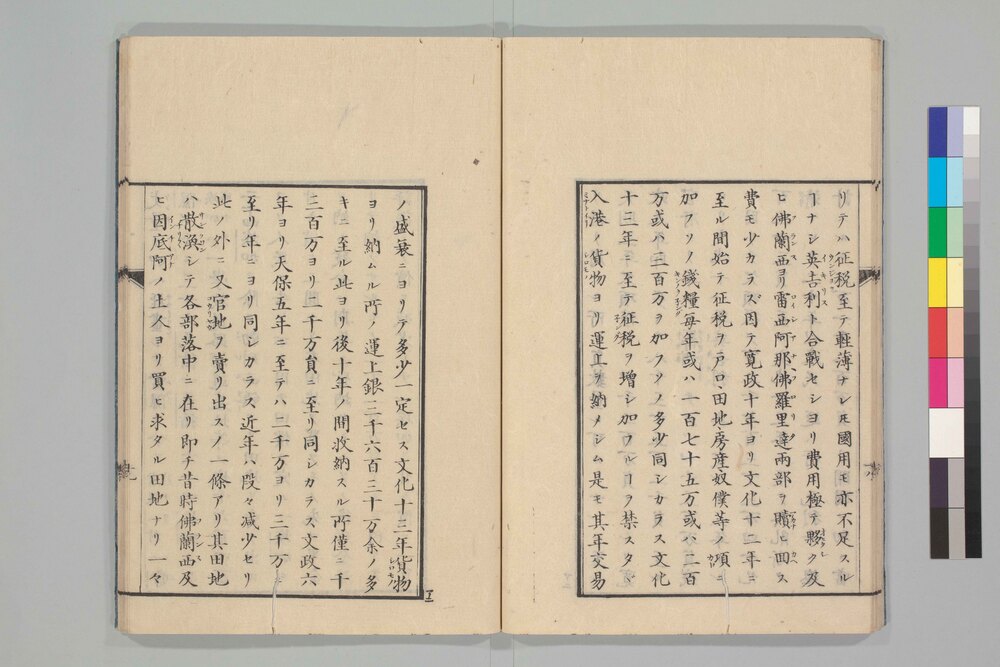 リテハ征税至テ軽薄ナレ𪜈國用モ亦不足スル
ヿナシ英吉利ト合戰セシヨリ費用極テ夥ク及
ヒ佛蘭西ヨリ雷西阿那佛羅里達兩部ヲ贖ヒ回ス
費モ少カラズ因テ寛政十年ヨリ文化十二年ニ
至ル間始テ征税ヲ戸口田地房産奴僕等ノ項ニ
加フソノ錢糧每年或ハ一百七十五万或ハ二百
万或ハ三百万ヲ加フソノ多少同シカラス文化
十三年ニ至テ征税ヲ增シ加フルヿヲ禁スタヾ
入港ノ貨物ヨリ運上ヲ納メシム是モ其年交易
ノ盛衰ニヨリテ多少一定セス文化十三年貨物
ヨリ納ムル所ノ運上銀三千六百三十万余ノ多
キニ至ル此ヨリ後十年ノ間收納スル所僅ニ千
三百万ヨリ二千万負ニ至リ同シカラス文政六
年ヨリ天保五年ニ至テハ二千万ヨリ三千万ニ
至リ年ニヨリ同シカラス近年ハ段々减少セリ
此ノ外ニ又官地ヲ賣リ出スノ一條アリ其田地
ハ散渙シテ各部落中ニ在リ即チ昔時佛蘭西及
ヒ因底阿ノ土人ヨリ買ヒ求タル田地ナリ一々